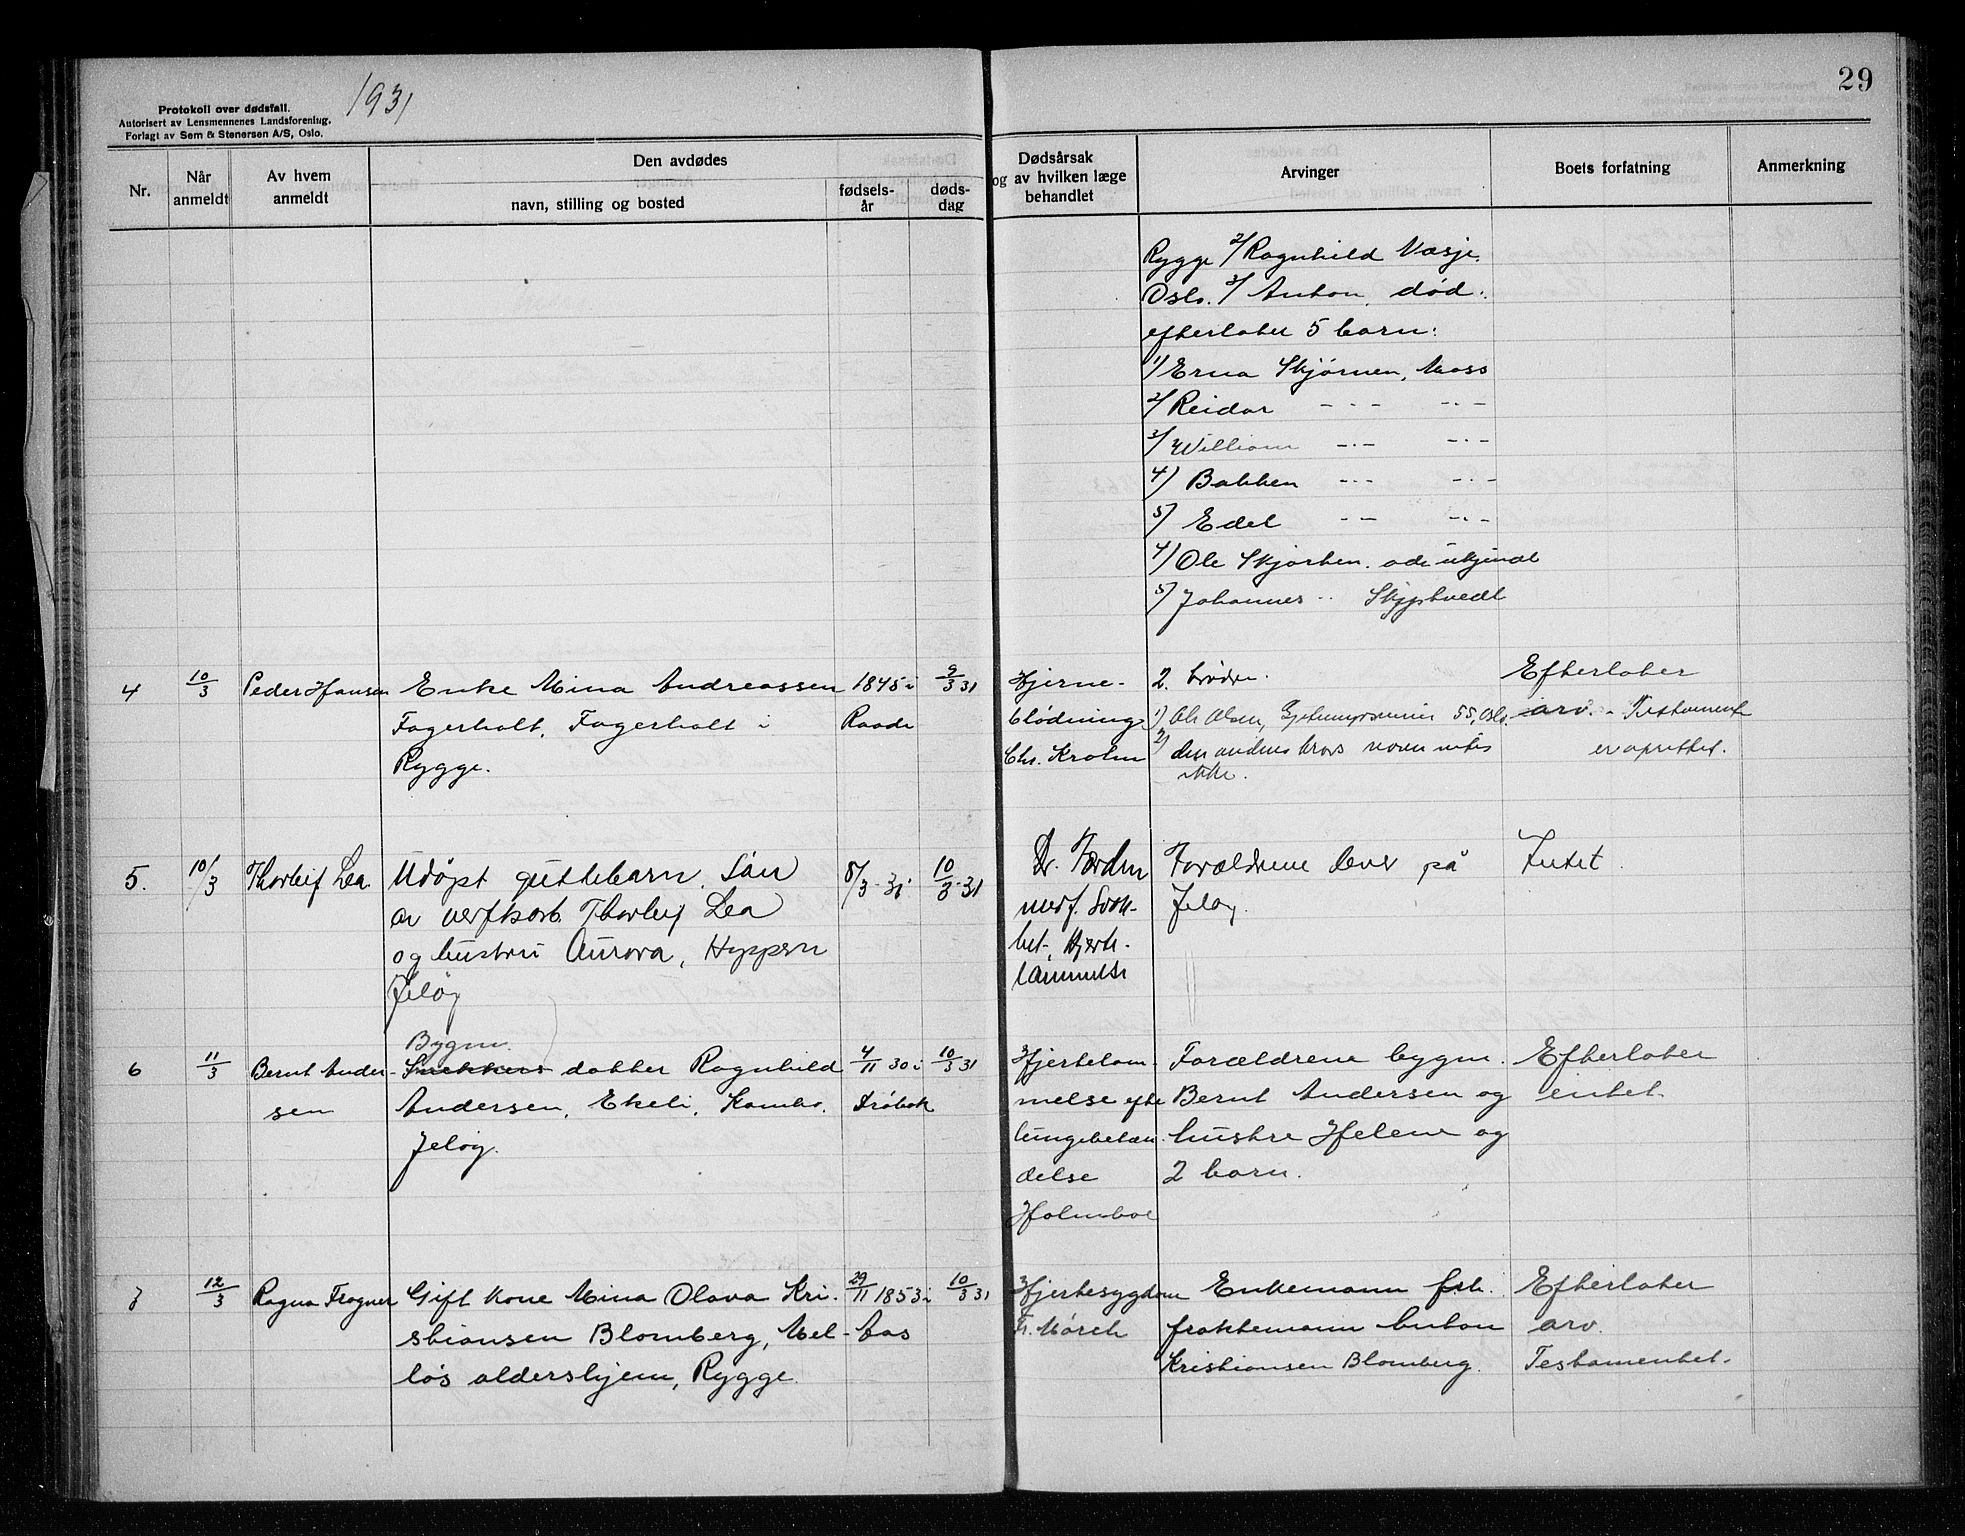 1931
29
Protokoll over dødsfall.
Autorisert av Lensmennenes Landsforening.
Forlagt av Sem & Stenersen A/S, Oslo.
Nr.
Når anmeldt
Av hvem anmeldt
Den avdødes
navn, stilling og bosted
fødsels-år
døds-dag
Dødsårsak
og av hvilken læge
behandlet
Arvinger
Boets forfatning
Anmerkning
Rygge 2/ Ragnhild Vasje.
Oslo. 3/ Anton, død.
efterlater 5 barn:
1/ Erna Skjørnen, Moss
2/ Reidar - - - - - -
3/ William - - - - - -
4/ Bakken - - - - - -
5/ Edel - - - - - -
4/ Ole Skjørten. adr. ukjendt
5/ Johannes - - Skjptvedt
4
10/3
Peder Hansen
Enke Mina Andreassen
Fagerholt, Fagerholt i
Rygge.
1845 i
Raade
9/3 31
Hjerne-
blødning
Chr. Krohn
2. brødre.
1) Ole Olsen, 55, Oslo.
2) den andens navn vites
ikke.
Efterlater
arv. - Testamente
er oprettet.
5.
10/3
Thorleif Lea
Udøpt guttebarn. Søn
av verftsarb. Thorleif Lea
og hustru Aurora, Hyppen
Jeløy
8/3-31
10/3-31
Dr.
Hjerte-
lammelse
Forældrene lever på
Jeløy.
Intet.
6
11/3
Bernt Ander-
sen
Bygm.
Snekkers datter Ragnhild
Andersen, Ekeli, Kambo.
Jeløy.
4/11 30 i
Drøbak
10/3 31
Hjertelam-
melse efte
lungebetæn-
delse
Holmboe
Forældrene bygm.
Bernt Andersen og
hustru Helene og
2 barn.
Efterlater
intet.
7
12/3
Ragna Frogner
Gift kone Mina Olava Kri-
stiansen Blomberg, Mel-
løs aldershjem, Rygge.
29/11 1853 i
Aas
10/3 31
Hjertesygdom
Fr. Mørch
Enkemann fhv.
fraktemann Anton
Kristiansen Blomberg.
Efterlater
arv.
Testamentet.